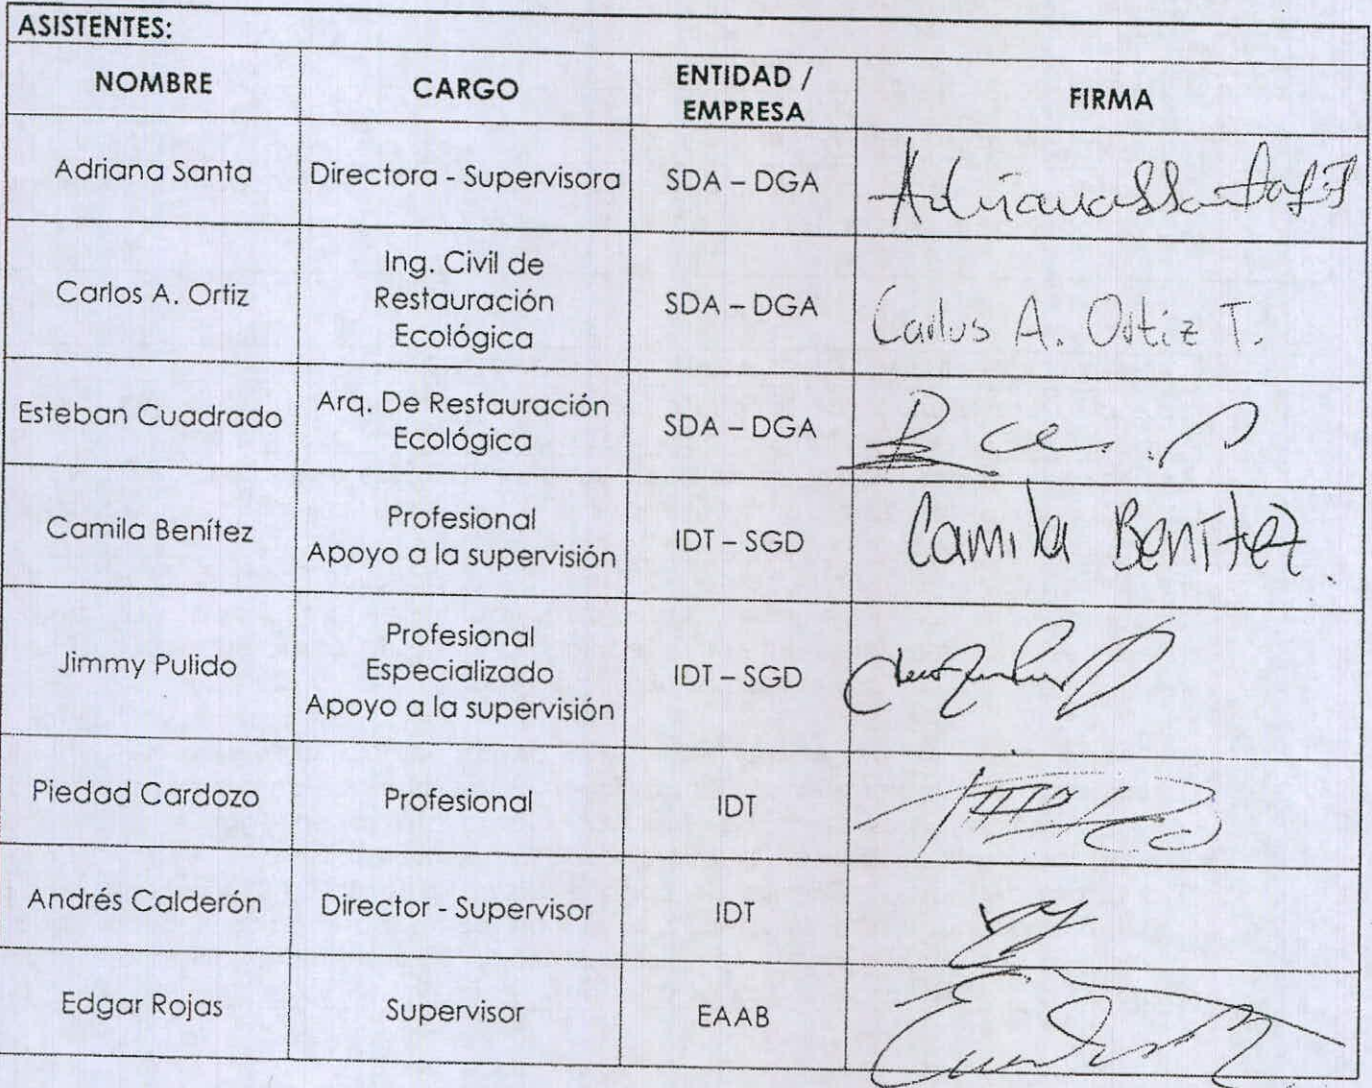 ASISTENTES:
NOMBRE CARGO ENTIDAD / EMPRESA FIRMA
Adriana Santa Directora - Supervisora SDA – DGA
Carlos A. Ortiz Ing. Civil de Restauración Ecológica SDA – DGA Carlos A. Ortiz T.
Esteban Cuadrado Arq. De Restauración Ecológica SDA – DGA
Camila Benítez Profesional Apoyo a la supervisión IDT – SGD Camila Benítez.
Jimmy Pulido Profesional Especializado Apoyo a la supervisión IDT – SGD
Piedad Cardozo Profesional IDT
Andrés Calderón Director - Supervisor IDT
Edgar Rojas Supervisor EAAB